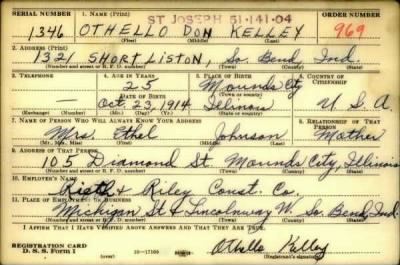 SERIAL NUMBER 1. NAME (Print) ORDER NUMBER
ST JOSEPH 51-141-04
1346 OTHELLO DON KELLEY 969
(First) (Middle) (Last)
2. ADDRESS (Print)
1321 SHORT LISTON, So. Bend Ind.
(Number and street or R. F. D. number) (Town) (County) (State)
3. TELEPHONE 4. AGE IN YEARS 5. PLACE OF BIRTH 6. COUNTRY OF CITIZENSHIP
25 Mounds City
DATE OF BIRTH (Town or county)
— Oct 23, 1914 Illinois U S A
(Exchange) (Number) (Mo.) (Day) (Yr.) (State or country)
7. NAME OF PERSON WHO WILL ALWAYS KNOW YOUR ADDRESS 8. RELATIONSHIP OF THAT PERSON
Mrs. Ethel Johnson Mother
(Mr., Mrs., Miss) (First) (Middle) (Last)
9. ADDRESS OF THAT PERSON
105 Diamond St. Mounds City, Illinois
(Number and street or R. F. D. number) (Town) (County) (State)
10. EMPLOYER'S NAME
Rieth & Riley Const. Co.
11. PLACE OF EMPLOYMENT OR BUSINESS
Michigan St & Lincolnway W. So. Bend, Ind.
(Number and street or R. F. D. number) (Town) (County) (State)
I AFFIRM THAT I HAVE VERIFIED ABOVE ANSWERS AND THAT THEY ARE TRUE.
REGISTRATION CARD
D. S. S. Form 1 16—17105 Othello Kelley
(over) (Registrant's signature)